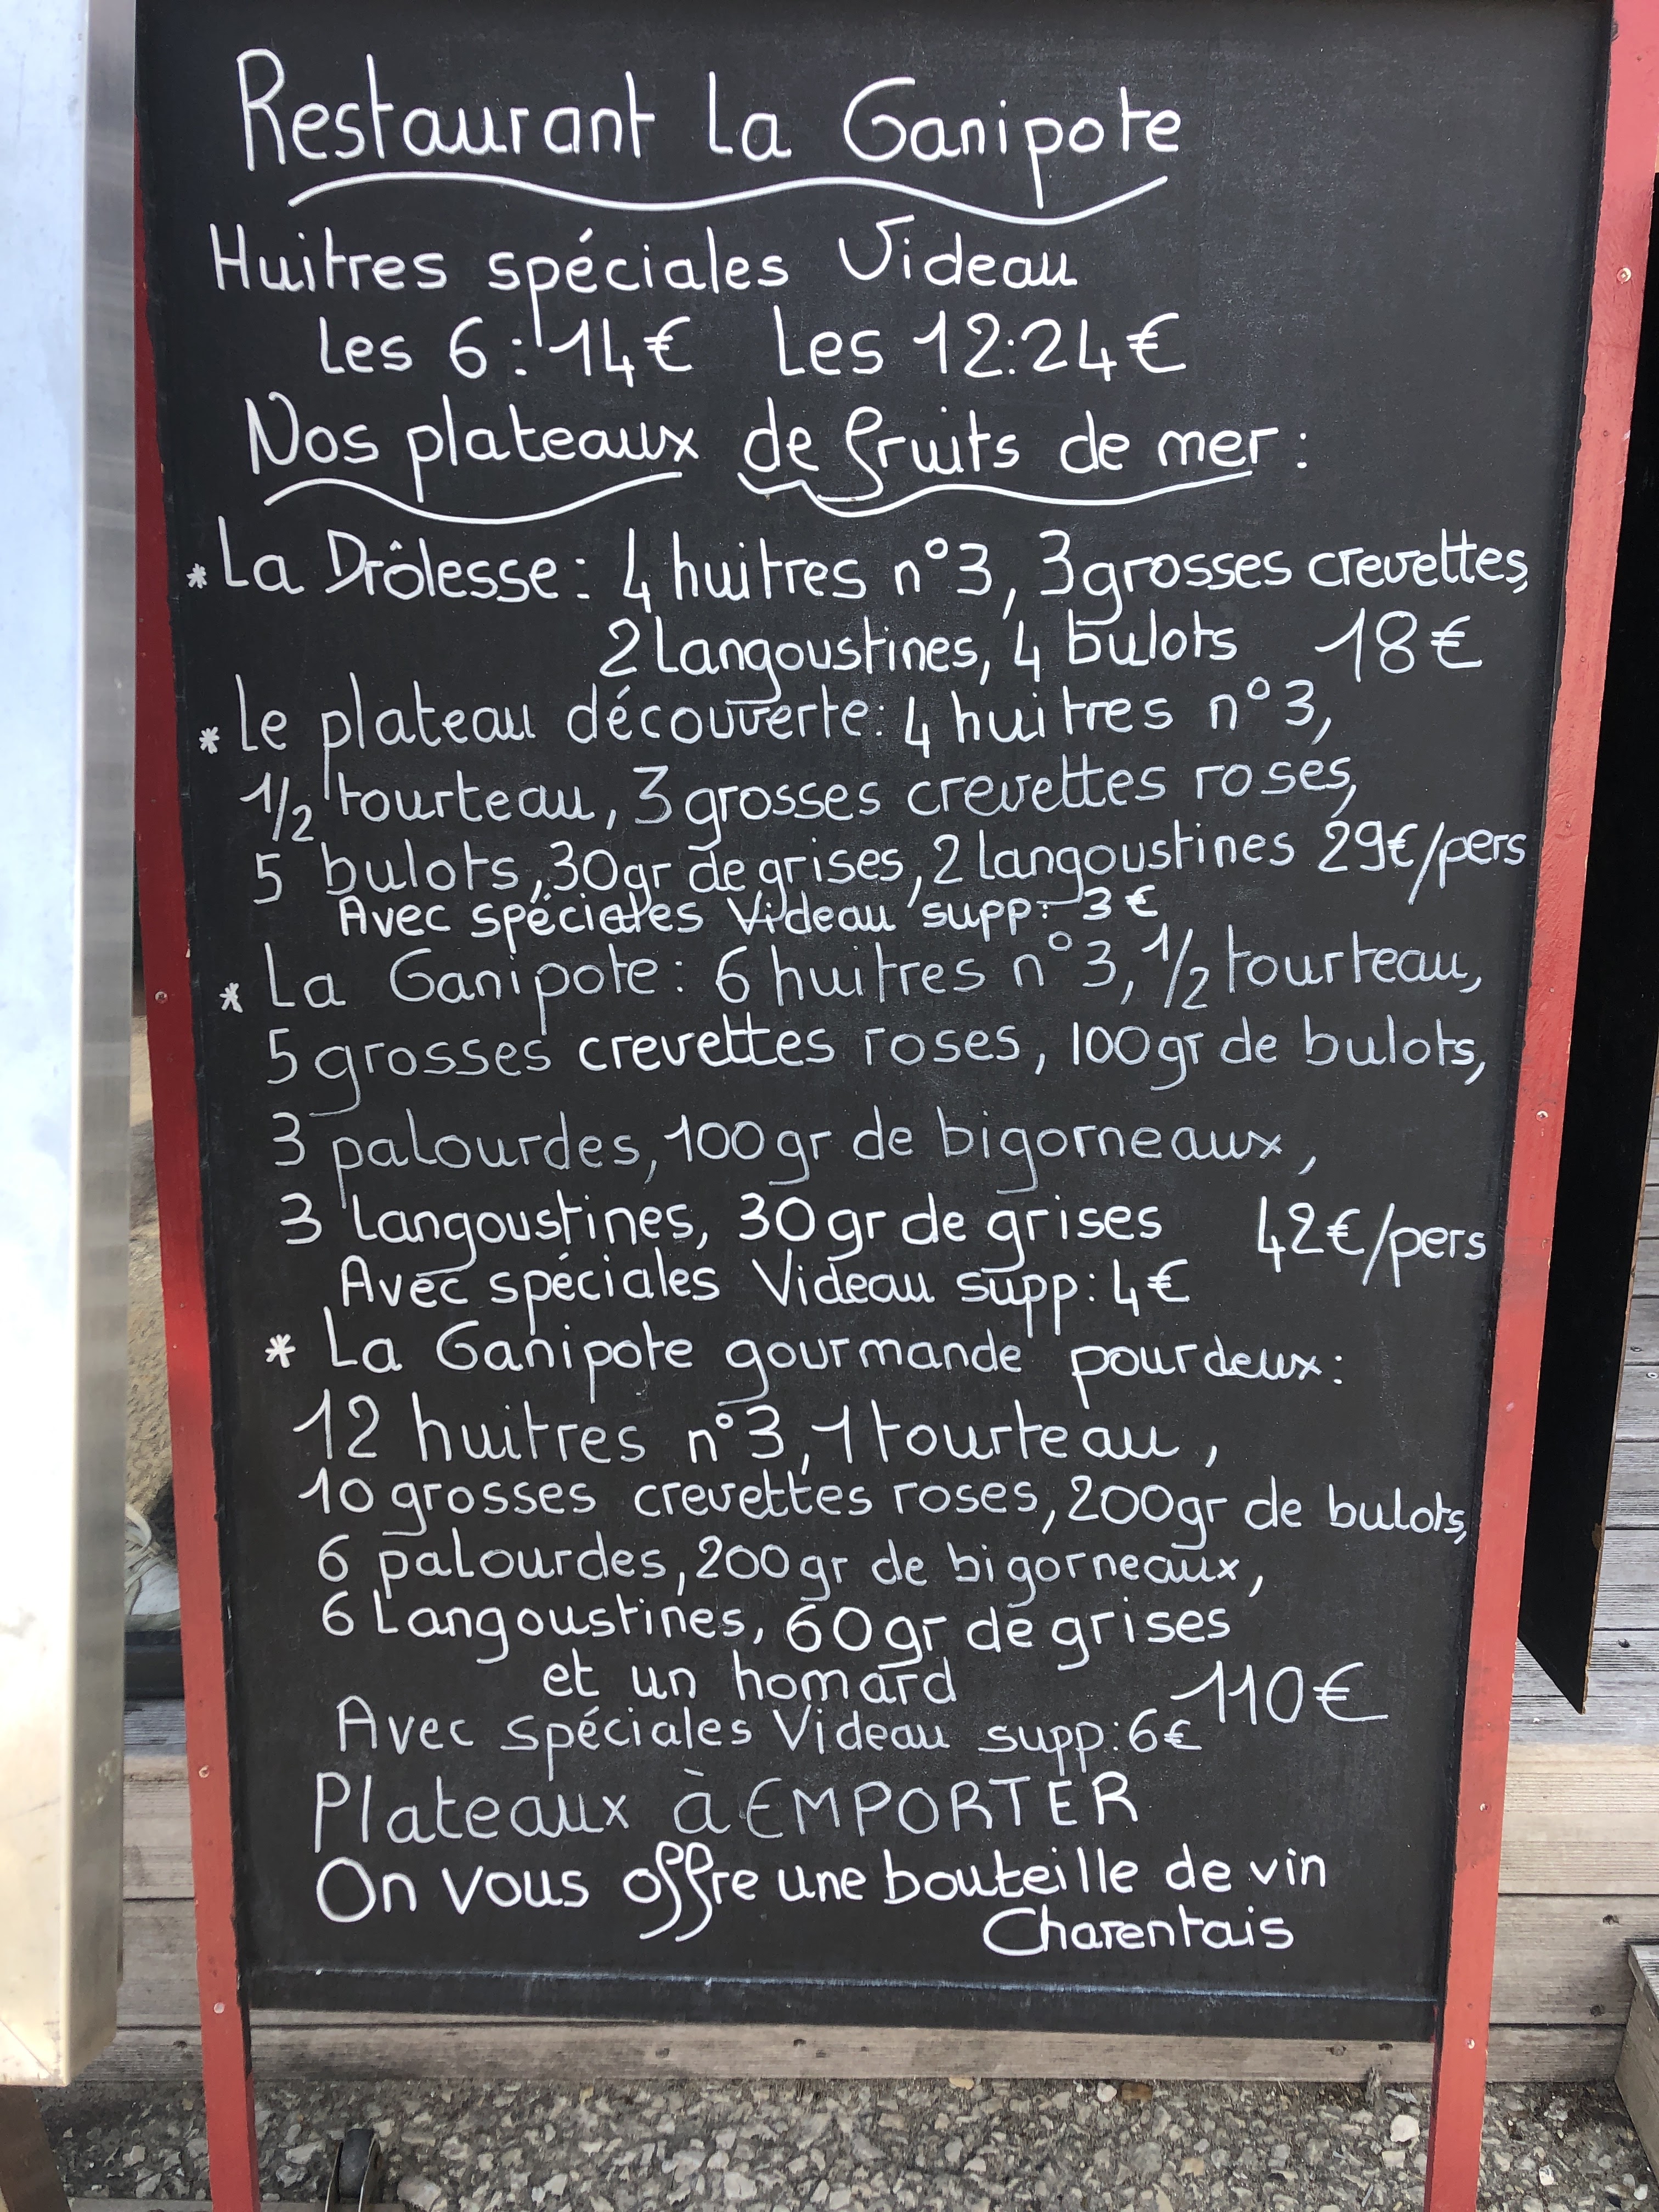 Restaurant La Ganipote
Huitres spéciales Videau
Les 6 : 14€ Les 12 : 24€
Nos plateaux de fruits de mer :
* La Drôlesse : 4 huitres n°3, 3 grosses crevettes,
2 langoustines, 4 bulots 18€
* Le plateau découverte : 4 huitres n°3,
1/2 tourteau, 3 grosses crevettes roses,
5 bulots, 30gr de grises, 2 langoustines 29€/pers
Avec spéciales Videau supp : 3€
* La Ganipote : 6 huitres n°3, 1/2 tourteau,
5 grosses crevettes roses, 100gr de bulots,
3 palourdes, 100gr de bigorneaux,
3 langoustines, 30gr de grises 42€/pers
Avec spéciales Videau supp : 4€
* La Ganipote gourmande pour deux :
12 huitres n°3, 1 tourteau,
10 grosses crevettes roses, 200gr de bulots,
6 palourdes, 200gr de bigorneaux,
6 Langoustines, 60gr de grises
et un homard 110€
Avec spéciales Videau supp : 6€
Plateaux à EMPORTER
On vous offre une bouteille de vin
Charentais